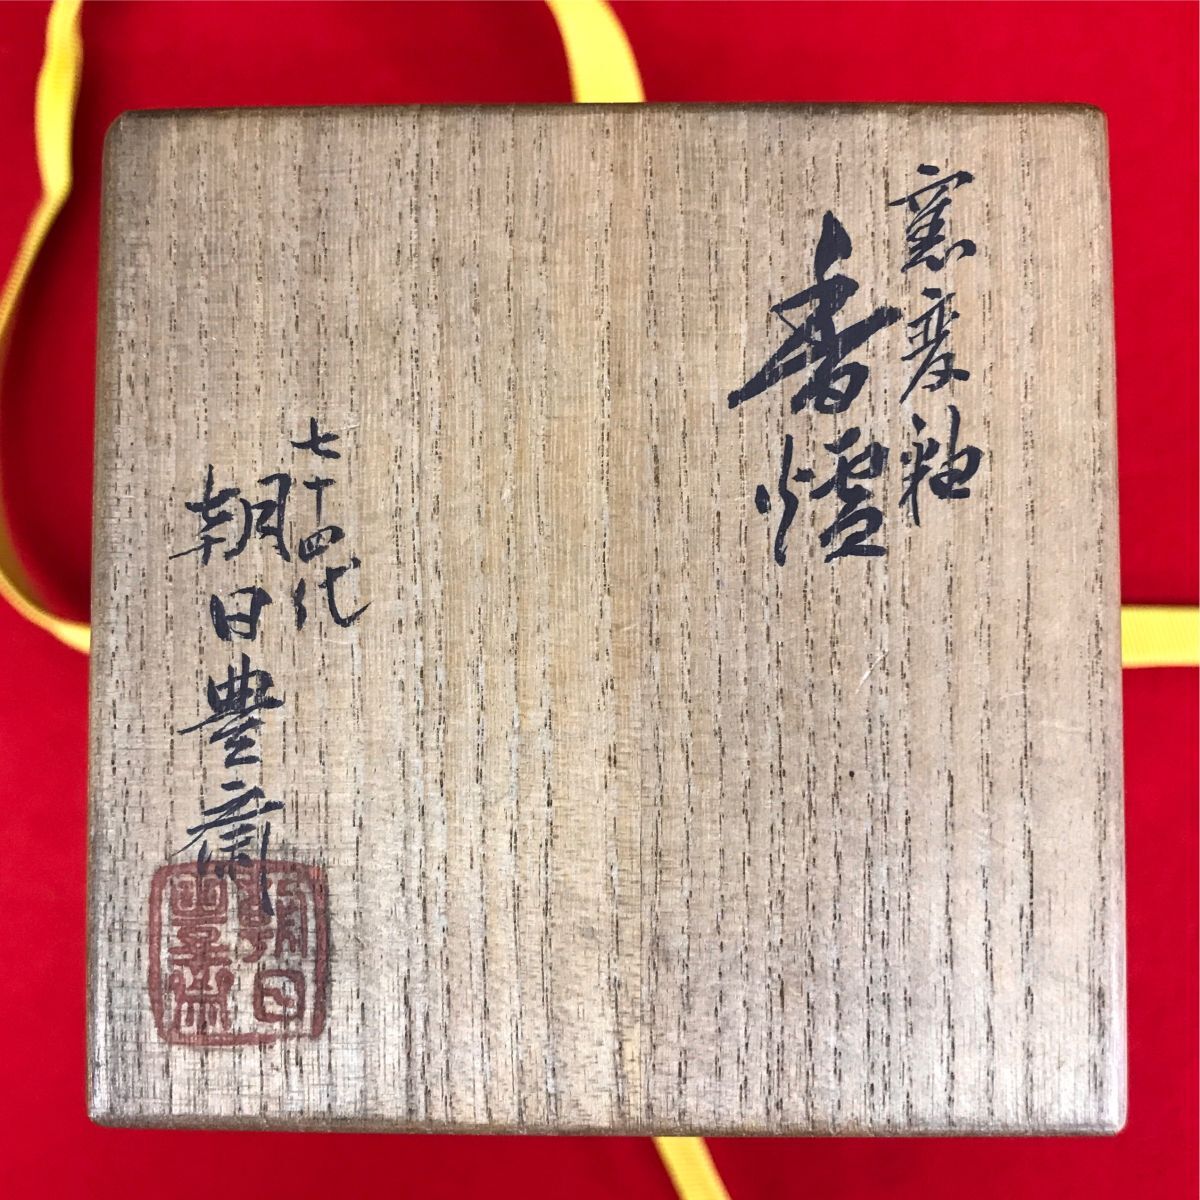 窯変釉
香炉
七十四代
朝日豊斎
朝日
豊斎